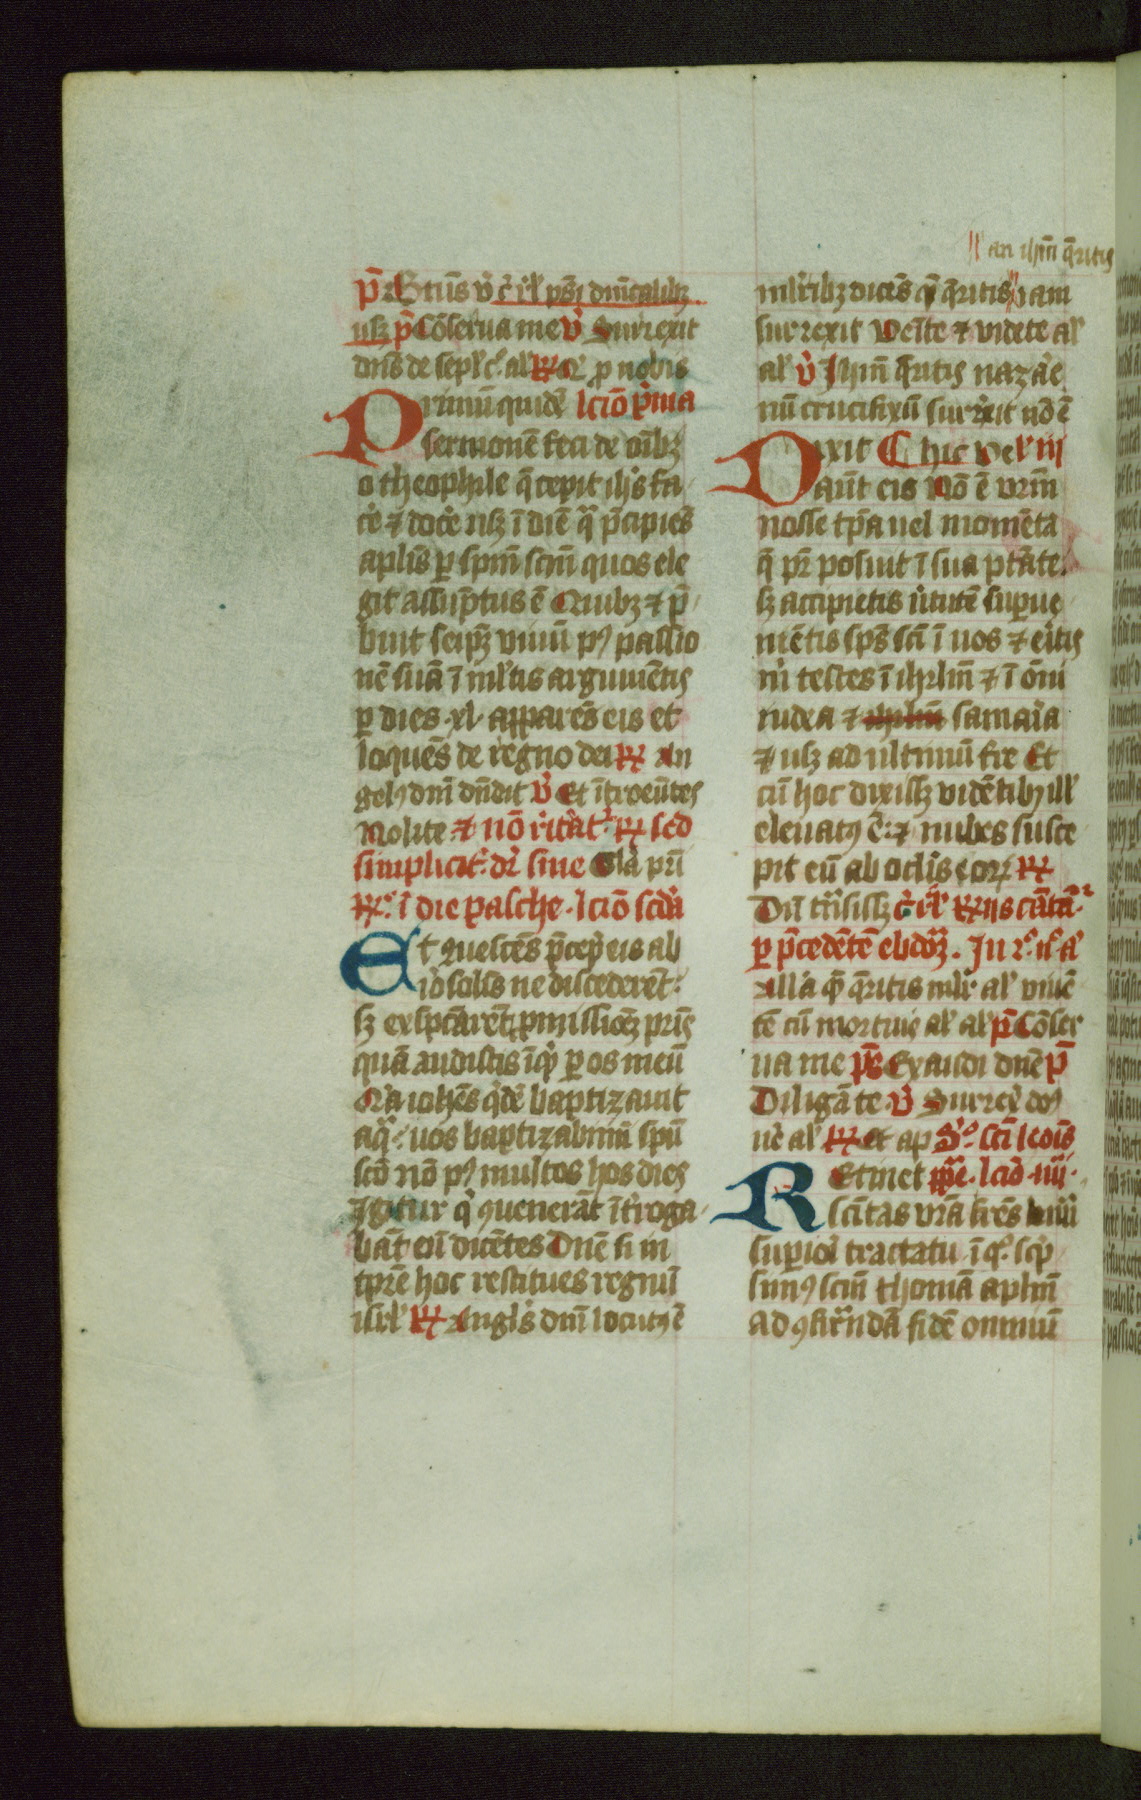 an ihm̄ q̄ritis
p̄s Btūs v̊ c̄ r̄l psj dnīcalibꝫ
usꝫ p̄ Cōserua me v̊ Surrexit
dn̄s de sepl'c̊ al' R̄ Q' ꝓ nobis
Primū quidē lc̄io p̊ma
sermonē feci de oībꝫ
o theophile q̄ cepit ih̄s fa
c̊e ⁊ doc̊e usꝫ ī diē qᵃ p̄cipiēs
aplīs ꝑ sp̄m sc̄m quos ele
git assūptus ē Quibꝫ ⁊ p̄
buit seip̄ꝫ viuū pꝰ passio
nē suā ī ml̄tis argumētis
ꝑ dies xl apparēs eis et
loquēs de regno dei R̄ An
gelꝰ dn̄i dn̄dit v̊ Et ītroeūtes
Nolite ⁊ nō r̊itat̊ R̄ sed
simplicit̊ dr̄ sine Glā pr̄i
R̄ ī die pasche lc̄io scd̄a
Et ꝯuescēs p̄cep̊ eis ab
ih̊osolis ne discederēt
sꝫ exspc̄arēt ꝓmissiōꝫ pr̄is
quā audistis īqͥ ꝑ os meū
Qͥa ioh̄es qͥdē baptizauit
aqᵃ uos baptizabīm̄ spū
sc̄o nō pꝰ multos hos dies
Igitur qͥ ꝯuenerāt īt̊roga
bāt eū dicētes Dn̄e si in
tp̄re hoc restitues regnū
isrl' R̄ Angl̄s dn̄i locutꝰ ē
ml̊ribꝫ dicēs qᵃ q̄ritis iam
surrexit Veīte ⁊ videte al'
al' v̊ Ihm̄ q̄ritis nazar̊e
nū crucifixū surr̊xit nō ē
Dixit C hic Vel' iij
aūt eis Nō ē vr̄m
nosse tp̄a uel momēta
q̄ pr̄ posuit ī sua ptāte
sꝫ accipietis v̊tutē suꝑue
niētis sp̄s sc̄i ī uos ⁊ er̊tis
m̊ testes ī ihrlm̄ ⁊ ī ōni
iudea ⁊ samar̊a
⁊ usꝫ ad ultimū tr̄e Et
cū hoc dixissꝫ vidētibꝰ ill'
eleuatꝰ ē ⁊ nubes susce
pit eū ab oclīs eoꝝ R̄
Dū tn̄sissꝫ c̄ r̄l R̄ijs cātā
ꝑ p̄cedētē ebdōꝫ. In
Alla qͥ q̄ritis ml̊r al' viuē
tē cū mortuis al' al' p̄ Cōser
ua me p̄s Exaudi dn̄e p̄
Diligā te v̊ Surrex̊ dn̄s
ue̊ al' R̄ Et ap S̊ sc̄i leōis
Etinet pp̄e lc̄io iiij
R sc̄itas vr̄a fr̄es
suꝑiori tractatu ī qͦ sc̊p
simꝰ sc̄m thomā aplm̄
ad ꝯfirm̄dā fidē omniū